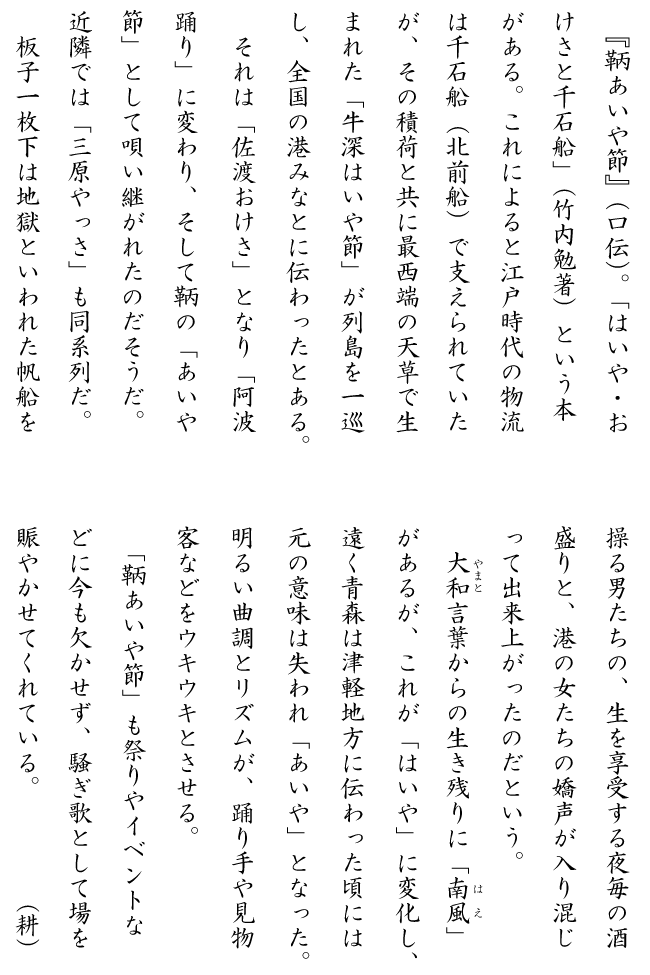 『鞆あいや節』（口伝）。「はいや・お
けさと千石船」（竹内勉著）という本
がある。これによると江戸時代の物流
は千石船（北前船）で支えられていた
が、その積荷と共に最西端の天草で生
まれた「牛深はいや節」が列島を一巡
し、全国の港みなとに伝わったとある。
それは「佐渡おけさ」となり「阿波
踊り」に変わり、そして鞆の「あいや
節」として唄い継がれたのだそうだ。
近隣では「三原やっさ」も同系列だ。
板子一枚下は地獄といわれた帆船を
操る男たちの、生を享受する夜毎の酒
盛りと、港の女たちの嬌声が入り混じ
って出来上がったのだという。
大和言葉からの生き残りに「南風」
やまと
はえ
があるが、これが「はいや」に変化し、
遠く青森は津軽地方に伝わった頃には
元の意味は失われ「あいや」となった。
明るい曲調とリズムが、踊り手や見物
客などをウキウキとさせる。
「鞆あいや節」も祭りやイベントな
どに今も欠かせず、騒ぎ歌として場を
賑やかせてくれている。　（耕）